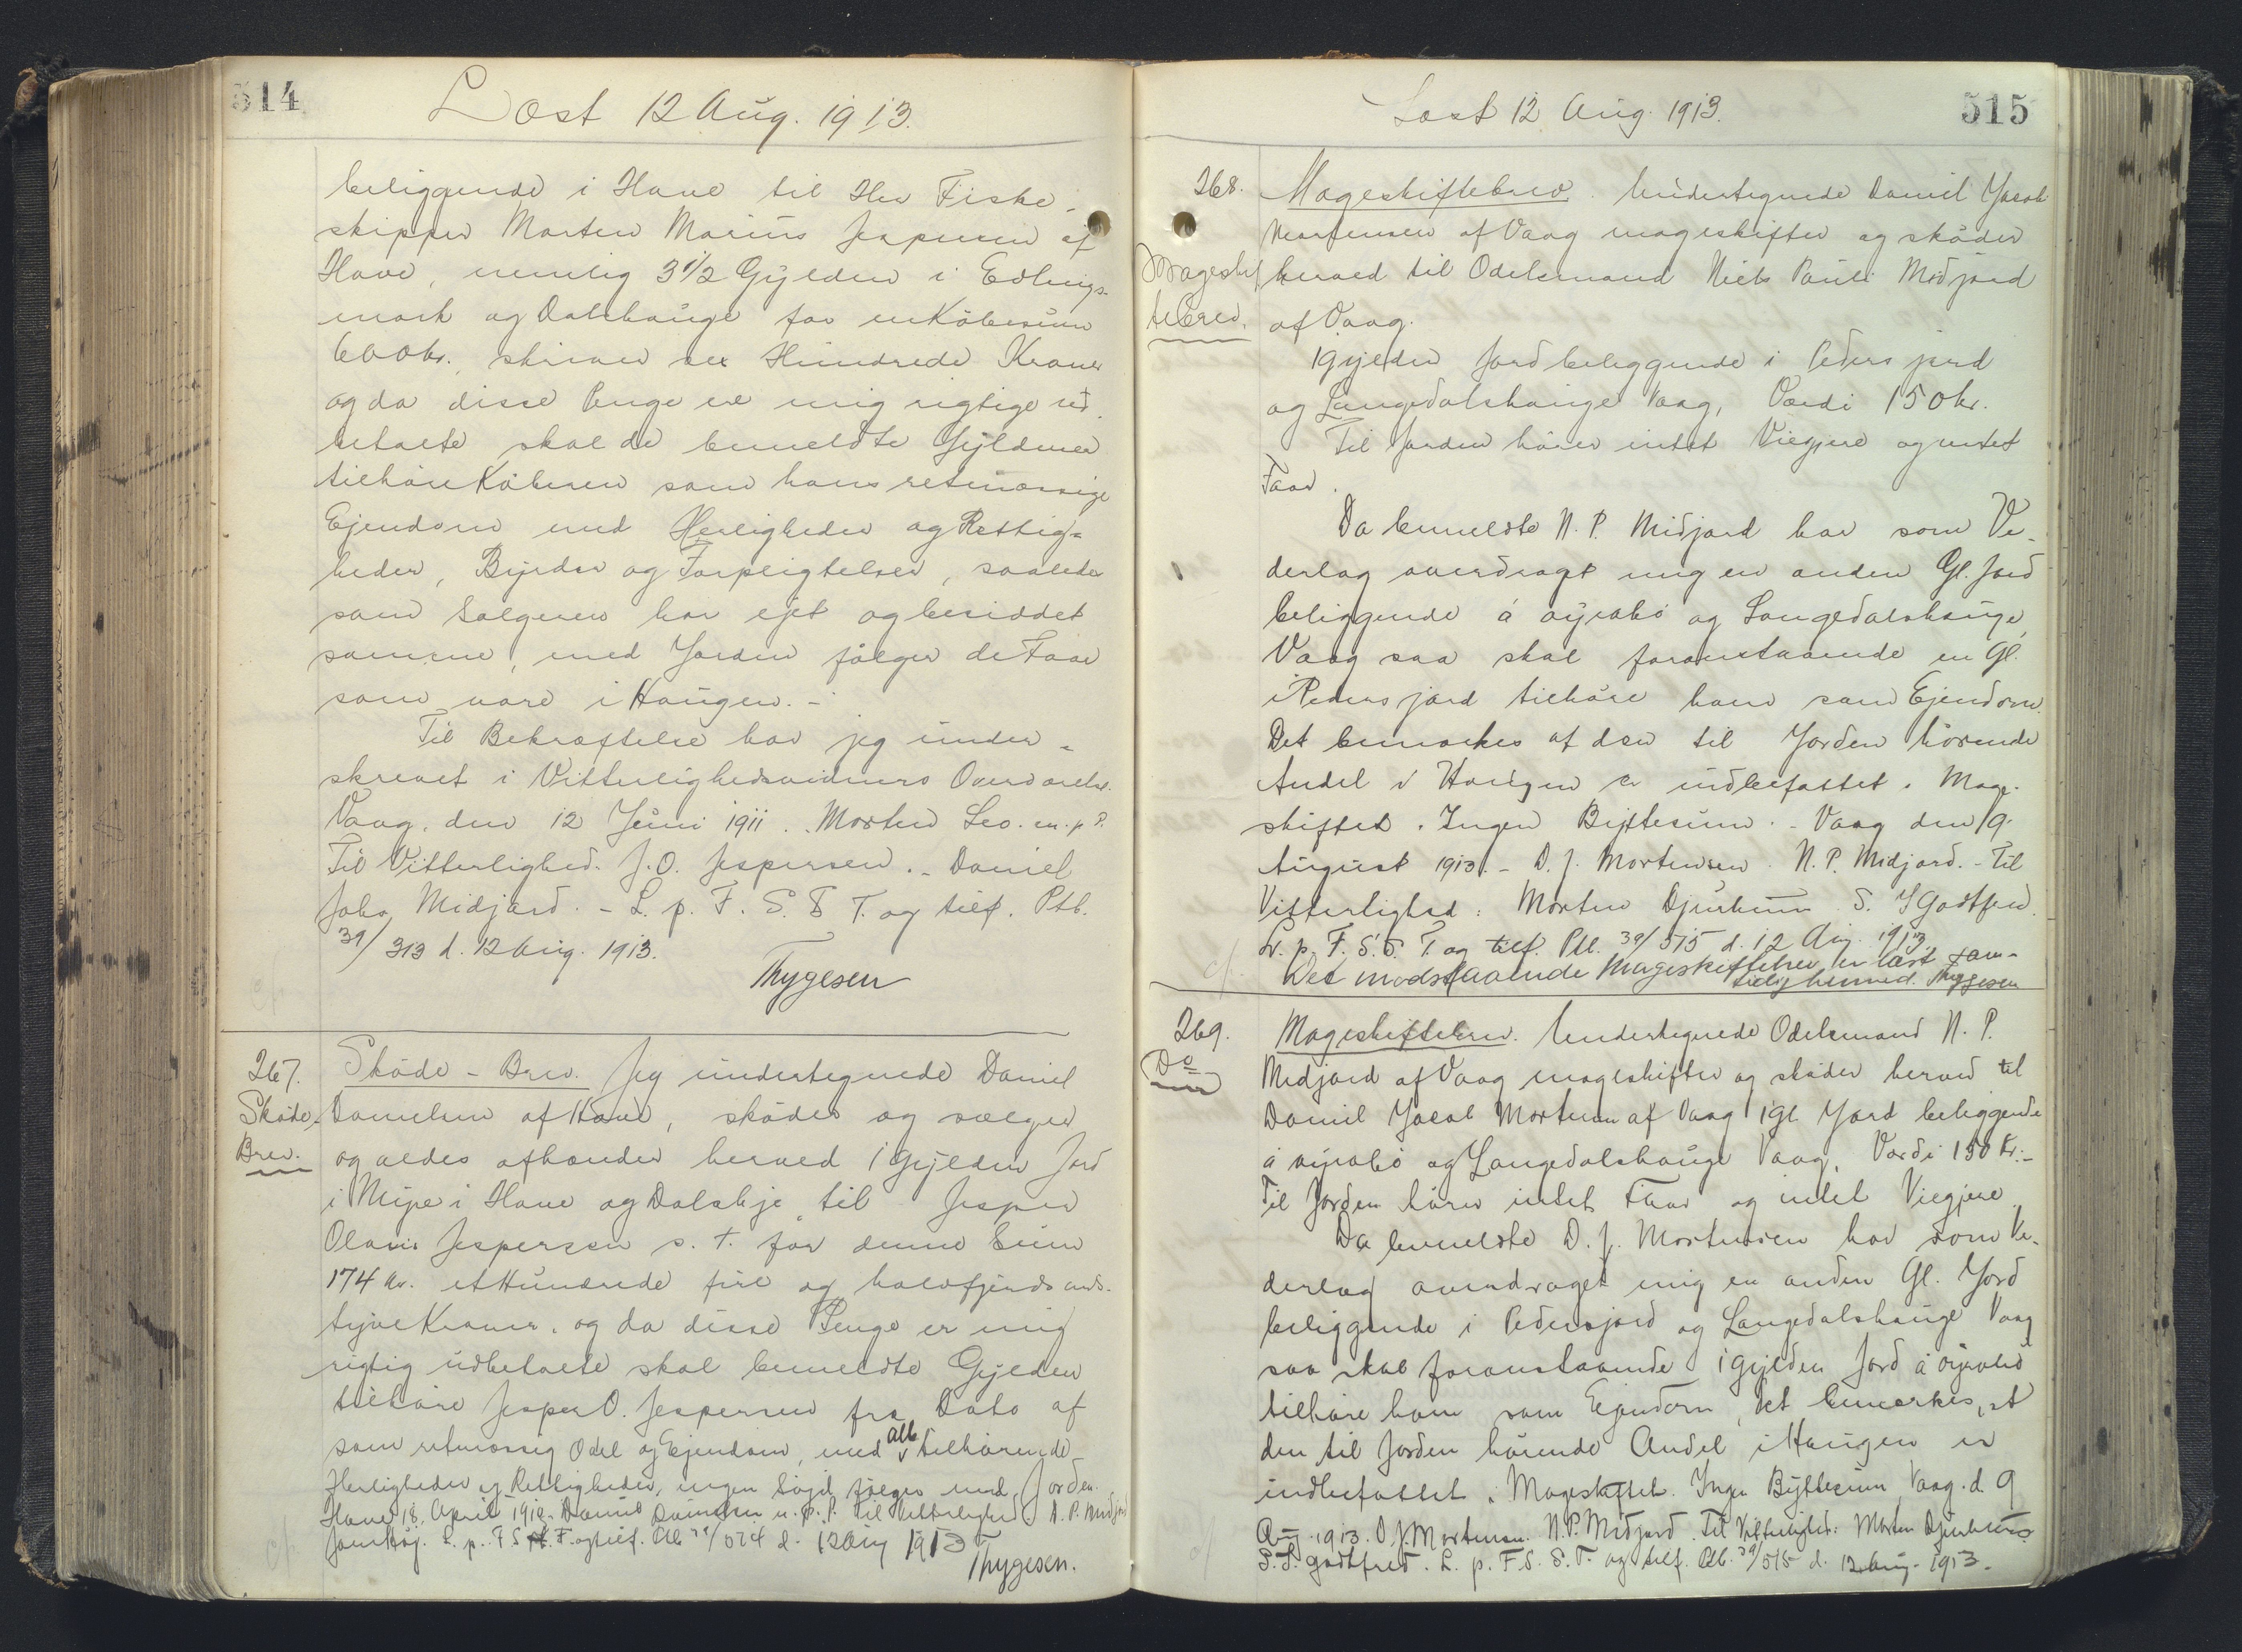 514
Læst 12 Aug. 1913.
beliggende i Hove til Hr Fiske-
skipper Morten Marius Jespersen af
Hove, nemlig 3 1/2 Gylden i
mark og Dalshauge for en Købesum
600 kr., skriver sex Hundrede Kroner
og da disse Penge ere mig rigtige ud
betalte skal de bemeldte Gyldener
tilhøre Køberen som hans retmæssige
Ejendom med Herligheder og Rettig=
heder, Byrder og Forpligtelser, saaledes
som Sælgeren har ejet og besiddet
samme, med Jorden følger de Faar
som vare i Haugen. -
Til Bekræftelse har jeg under=
skrevet i Vitterlighedsvidners Overværelse.
Vaag, den 12 Juni 1911. Morten Leo. m. p. P.
Til Vitterlighed. J. O. Jespersen. - Daniel
Midjord. - L. p. F. S. S T. og tilf. Ptb.
39/313 d. 12 Aug. 1913.
Thygesen
267.
Skøde-
Brev.
Skøde-Brev. Jeg undertegnede Daniel
Danielsen af Hove, skøder og sælger
og aldes afhænder herved 1 Gylden Jord
i Mype i Hove og til Jesper
Olavus Jespersen s. t. for denne Sum
174 kr. et Hundrede fire og halvfjerdsinds-
tyve Kroner. og da disse Penge er mig
rigtig udbetalte skal bemeldte Gylden
tilhøre Jesper O. Jespersen fra Dato af
som retmæssig Odel og Ejendom, med alle tilhørende
Herligheder og Rettigheder, ingen følger med Jorden.
Hove 18. April 1912. Daniel Danielsen m. p. P. Til Vitterlighed D. P. Midjord
L. p. F S T. og tilf. Ptb 39/514 d. 12 Aug 1913
Thygesen.
515
Læst 12 Aug. 1913.
268.
Mageskif
tebrev.
Mageskiftebrev. Undertegnede Daniel Jacob
Mortensen af Vaag mageskifter og skøder
herved til Odelsmand Niels Pauli Midjord
af Vaag.
1 gylden Jord beliggende i Peders jord
og Langedalshauge Vaag, Værdi 150 kr.
Til Jorden hører intet Viegjere og intet
Faar.
Da bemeldte N. P. Midjord har som Ve-
derlag overdraget mig en anden Gl. Jord
beliggende á og Langedalshauge,
Vaag saa skal foranstaaende en Gl.
i Peders jord tilhøre ham som Ejendom.
Det bemærkes at den til Jorden hörende
Andel i Haugen er indbefattet i Mage-
skiftet. Ingen Byttesum. - Vaag den 9.
August 1913. - D. J. Mortensen. N. P. Midjord. - Til
Vitterlighed: Morten Djurhuus S. J Godtfred.
L. p. F. S. S. T. og tilf. Ptb. 39/515 d. 12 Aug. 1913.
Det modstaaende Mageskiftebrev er læst sam-
tidig hermed. Thygesen
269.
Do
Mageskiftebrev. Undertegnede Odelsmand N. P.
Midjord af Vaag mageskifter og skøder herved til
Daniel Jacob Mortensen af Vaag 1 gl Jord beliggende
á og Langedalshauge Vaag, Værdi 150 Kr. -
Til Jorden hører intet Faar og intet Viegjere.
Da bemeldte D. J. Mortensen har som Ve-
derlag overdraget mig en anden Gl. Jord
beliggende i Pedersjord og Langedalshauge Vaag
saa skal foranstaaende 1 gylden Jord á
tilhøre ham som Ejendom, det bemærkes, at
den til Jorden hørende Andel i Haugen er
indbefattet i Mageskiftet. Ingen Byttesum, Vaag. d. 9
Aug. 1913. D. J. Mortensen. N. P. Midjord. Til Vitterlighed: Morten Djurhuus
S. J. Godtfred. L. p. F. S. S. T. og tilf. Ptb. 39/515 d. 12 Aug. 1913.